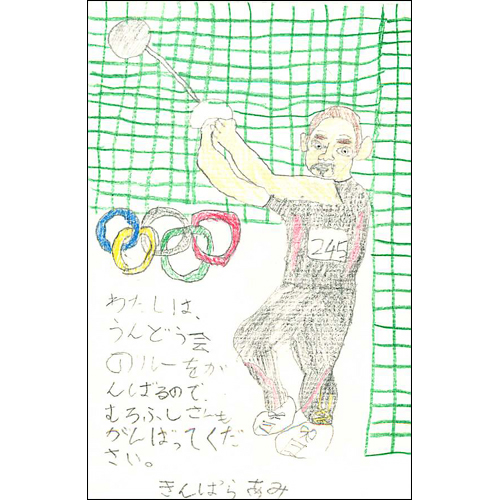 245
わたしは、
うんどう会
のルーをが
んばるので、
むろふしさんも
がんばってくだ
さい。
きんぱら あみ